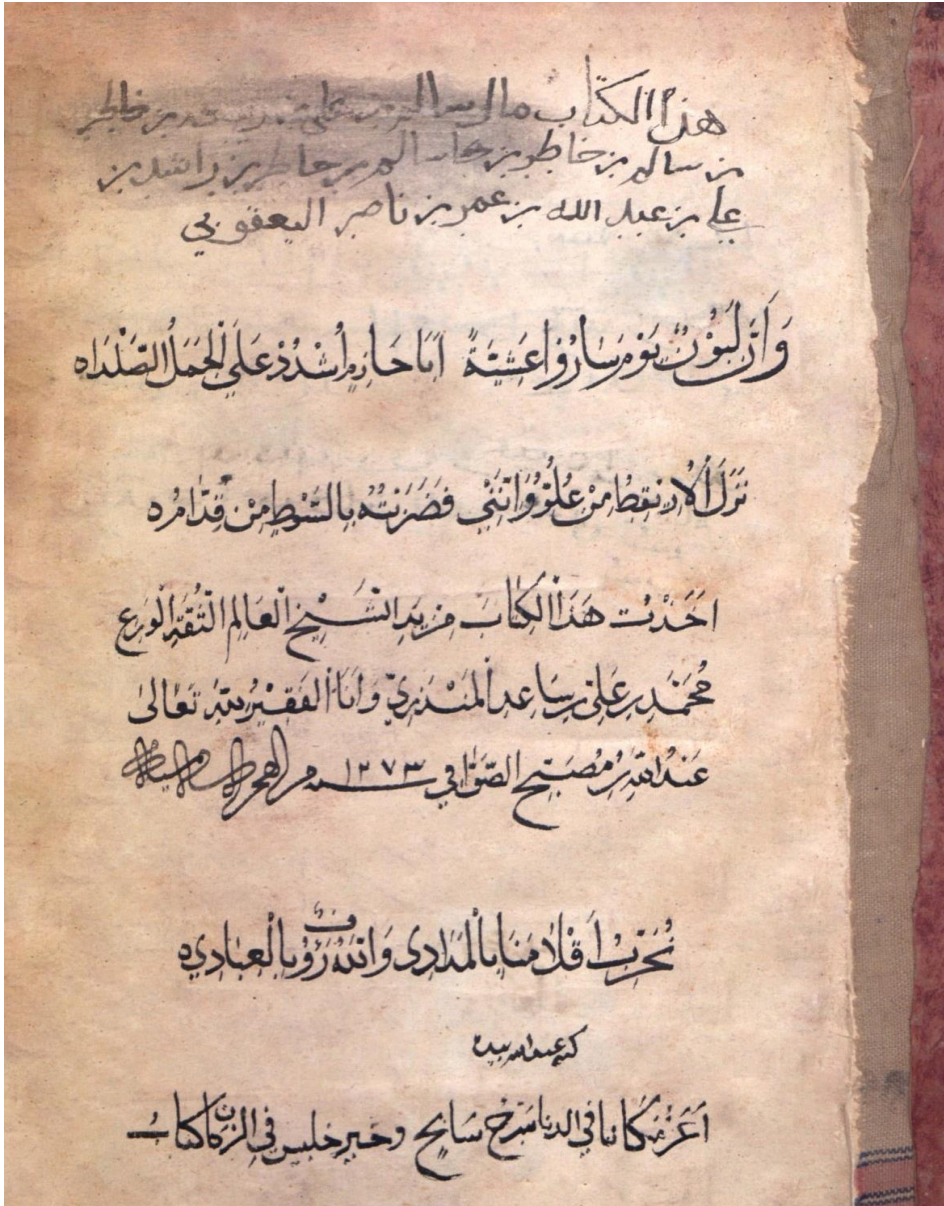 هذا الكتاب مال سالم بن علي بن بن
بن سالم بن خاطر بن سالم بن خاطر بن راشد بن
علي بن عبد الله بن عمر بن ناصر اليعقوبي
وَأَنْ يَوْمَ سَارُوا عَشِيَّةً أَنَا حَازِم أُشْدُدْ عَلَى الْجَمَلِ
نَزَلَ مِنْ عُلُوٍّ وَانْثَنَى فَضَرَبْتُهُ بِالسَّوْطِ مِنْ قُدَّامُه
اخَذْت هَذَا الْكِتَابَ مِن يَدِ الشَّيْخِ الْعَالِمِ الثِّقَةِ الْوَرِع
مُحَمَّد بن عَلي بن سَاعِد الْمَنْذِرِيّ وَأَنَا الْفَقِيْرُ لِلّهِ تَعَالى
عَبْدُ اللهِ بْنُ مُصَبَّحِ الصَّوَّافِي سنة ١٢٧٣ من الهجرة
نُجَرّبُ أَقْلَامَنَا بِالْمَدَادِي وَاللهُ رَؤُفٌ بِالْعِبَادِي
كتبه عبدالله بيده
أَعَزّ مَكَان في الدنا سَرْجُ سَابِح وخير جليس في الزمان كتاب